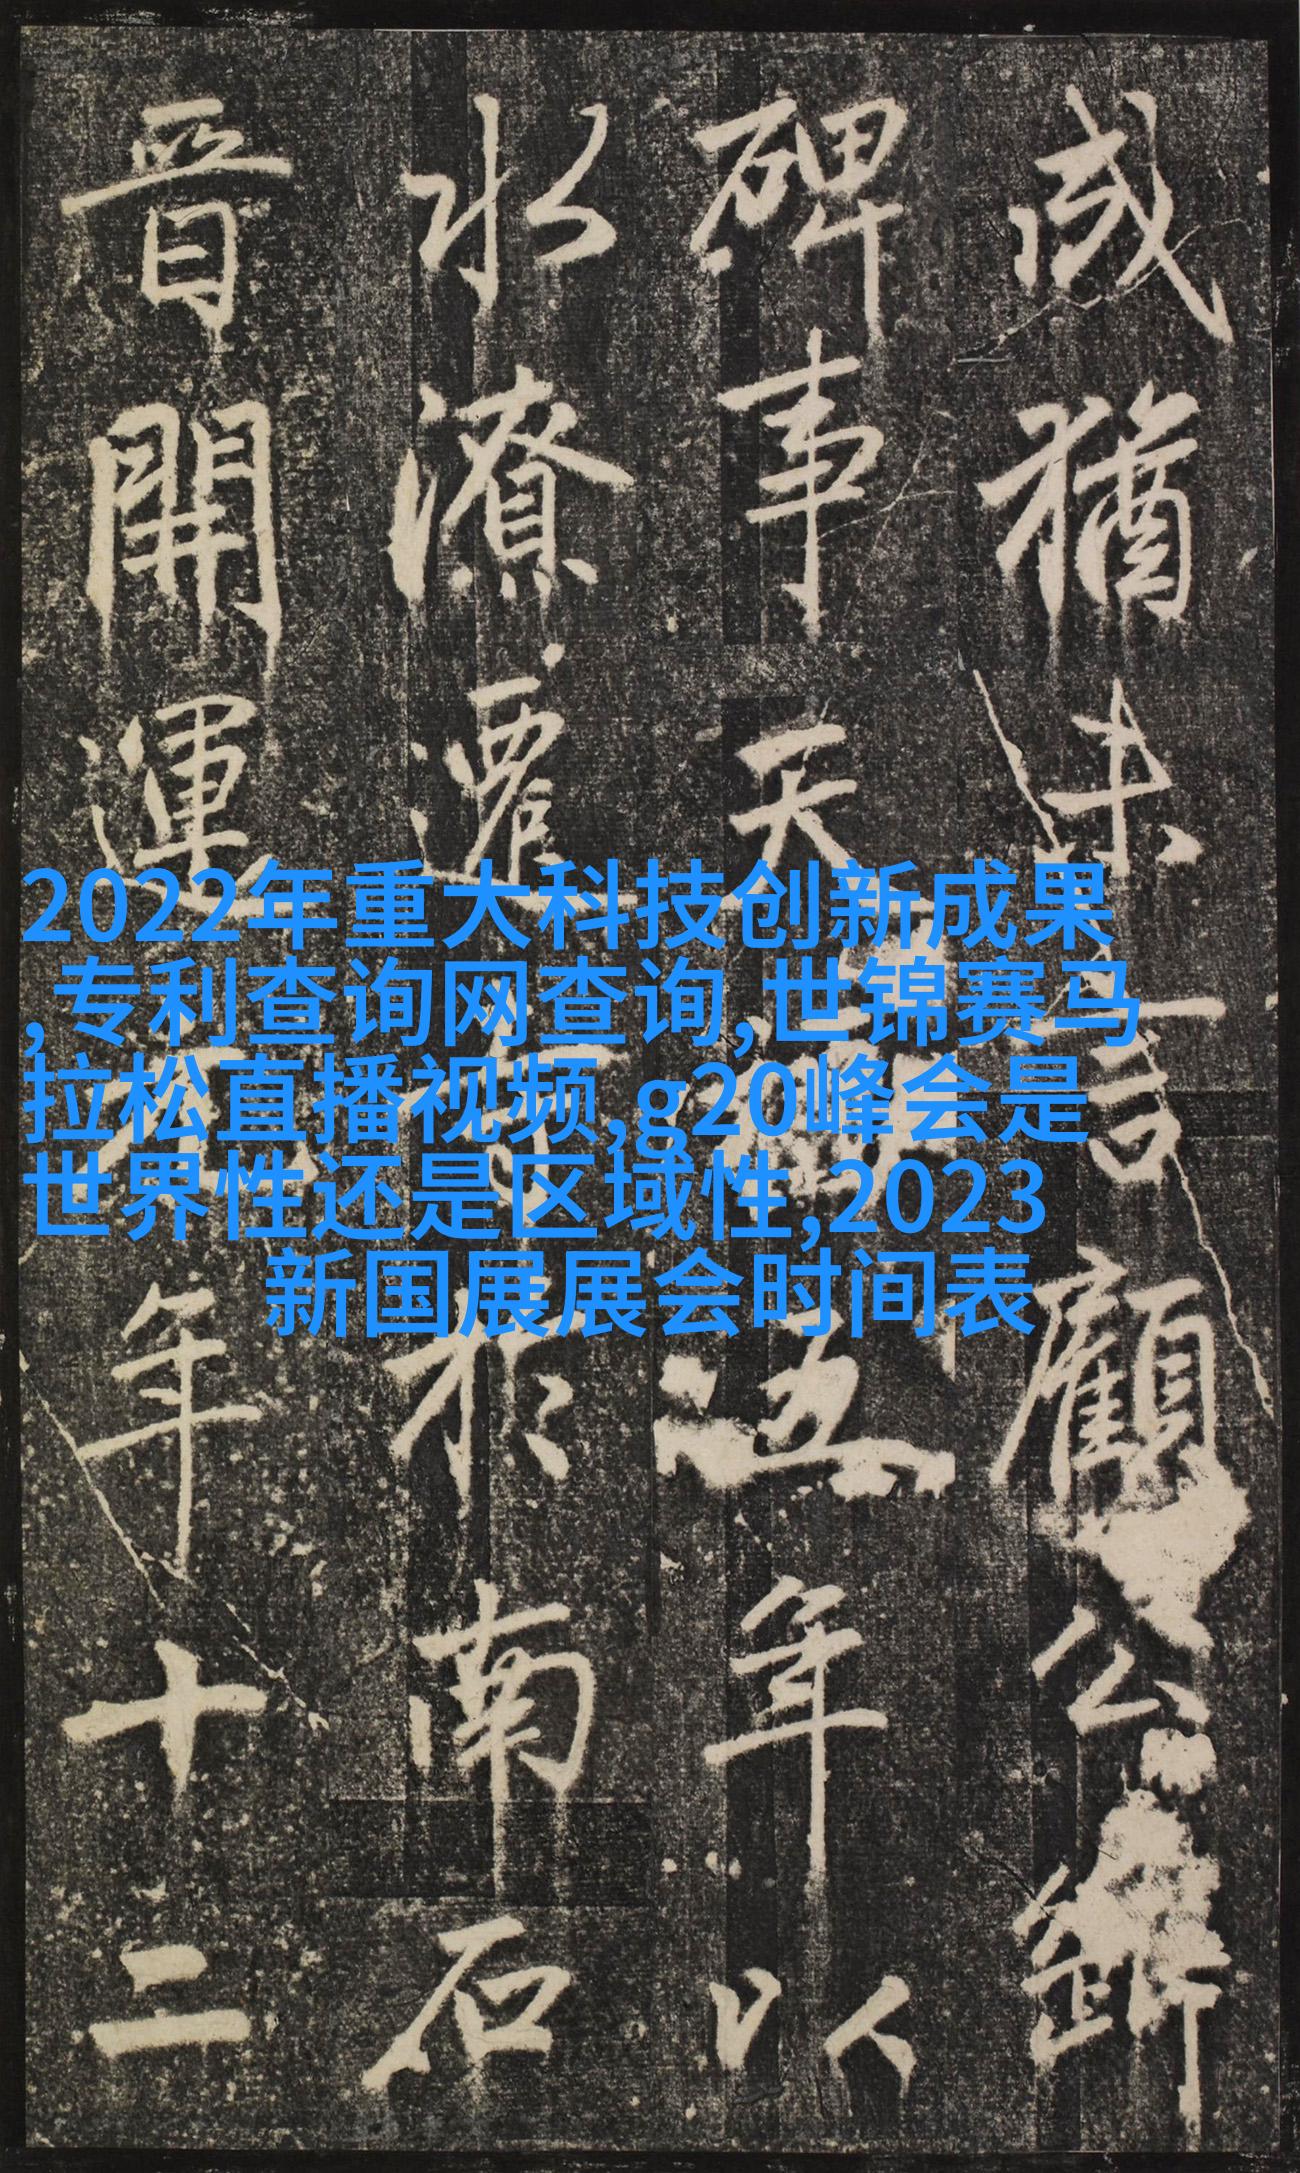 猶未言顧公
碑事天五年以
水潦遷於南石
晉開運年十二
2022年重大科技创新成果
,专利查询网查询,世锦赛马
拉松直播视频,g20峰会是
世界性还是区域性,2023
新国展展会时间表